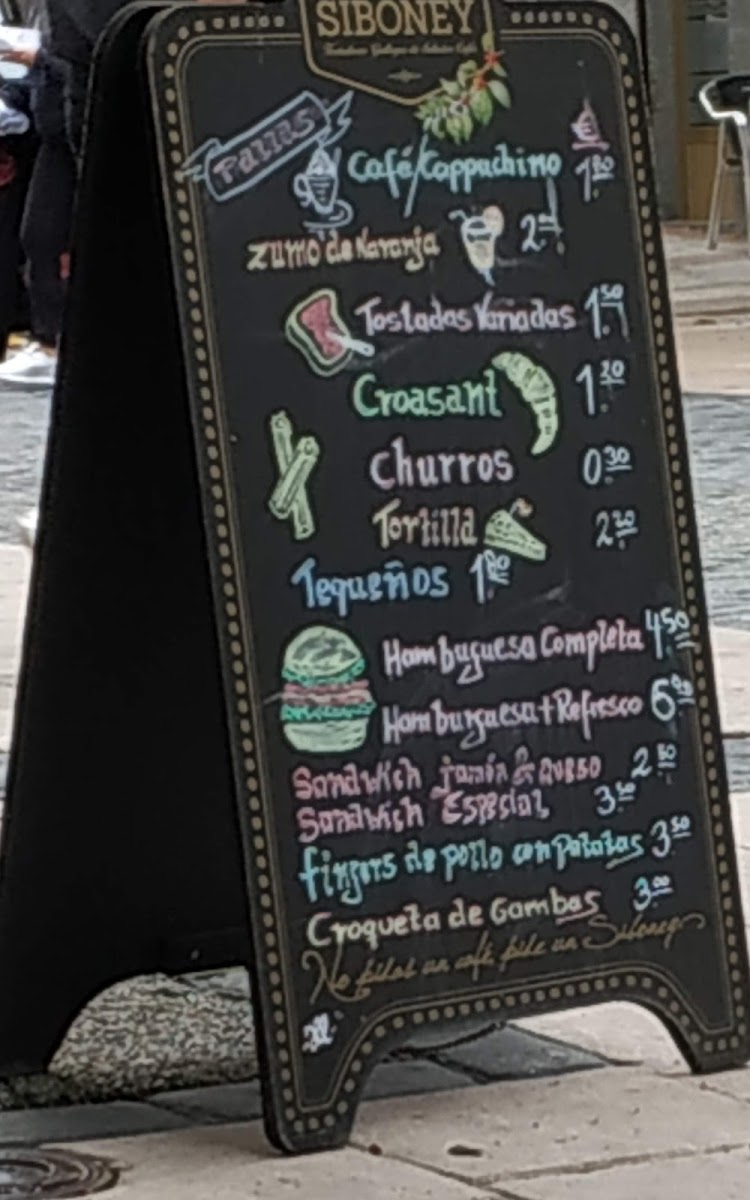 SIBONEY
Pallas
Café/Cappuchino 1.80
Zumo de Naranja
Tostadas Variadas 1.50
Croasant 1.20
Churros 0.30
Tortilla 2.20
Tequeños 1.80
Hambuguesa Completa 4.50
Hamburguesa + Refresco 6.00
Sandwich jamón & Queso 2.80
Sandwich Especial 3.50
fingers de pollo con patatas 3.50
Croqueta de Gambas 3.00
No pidas un café pide un Siboney